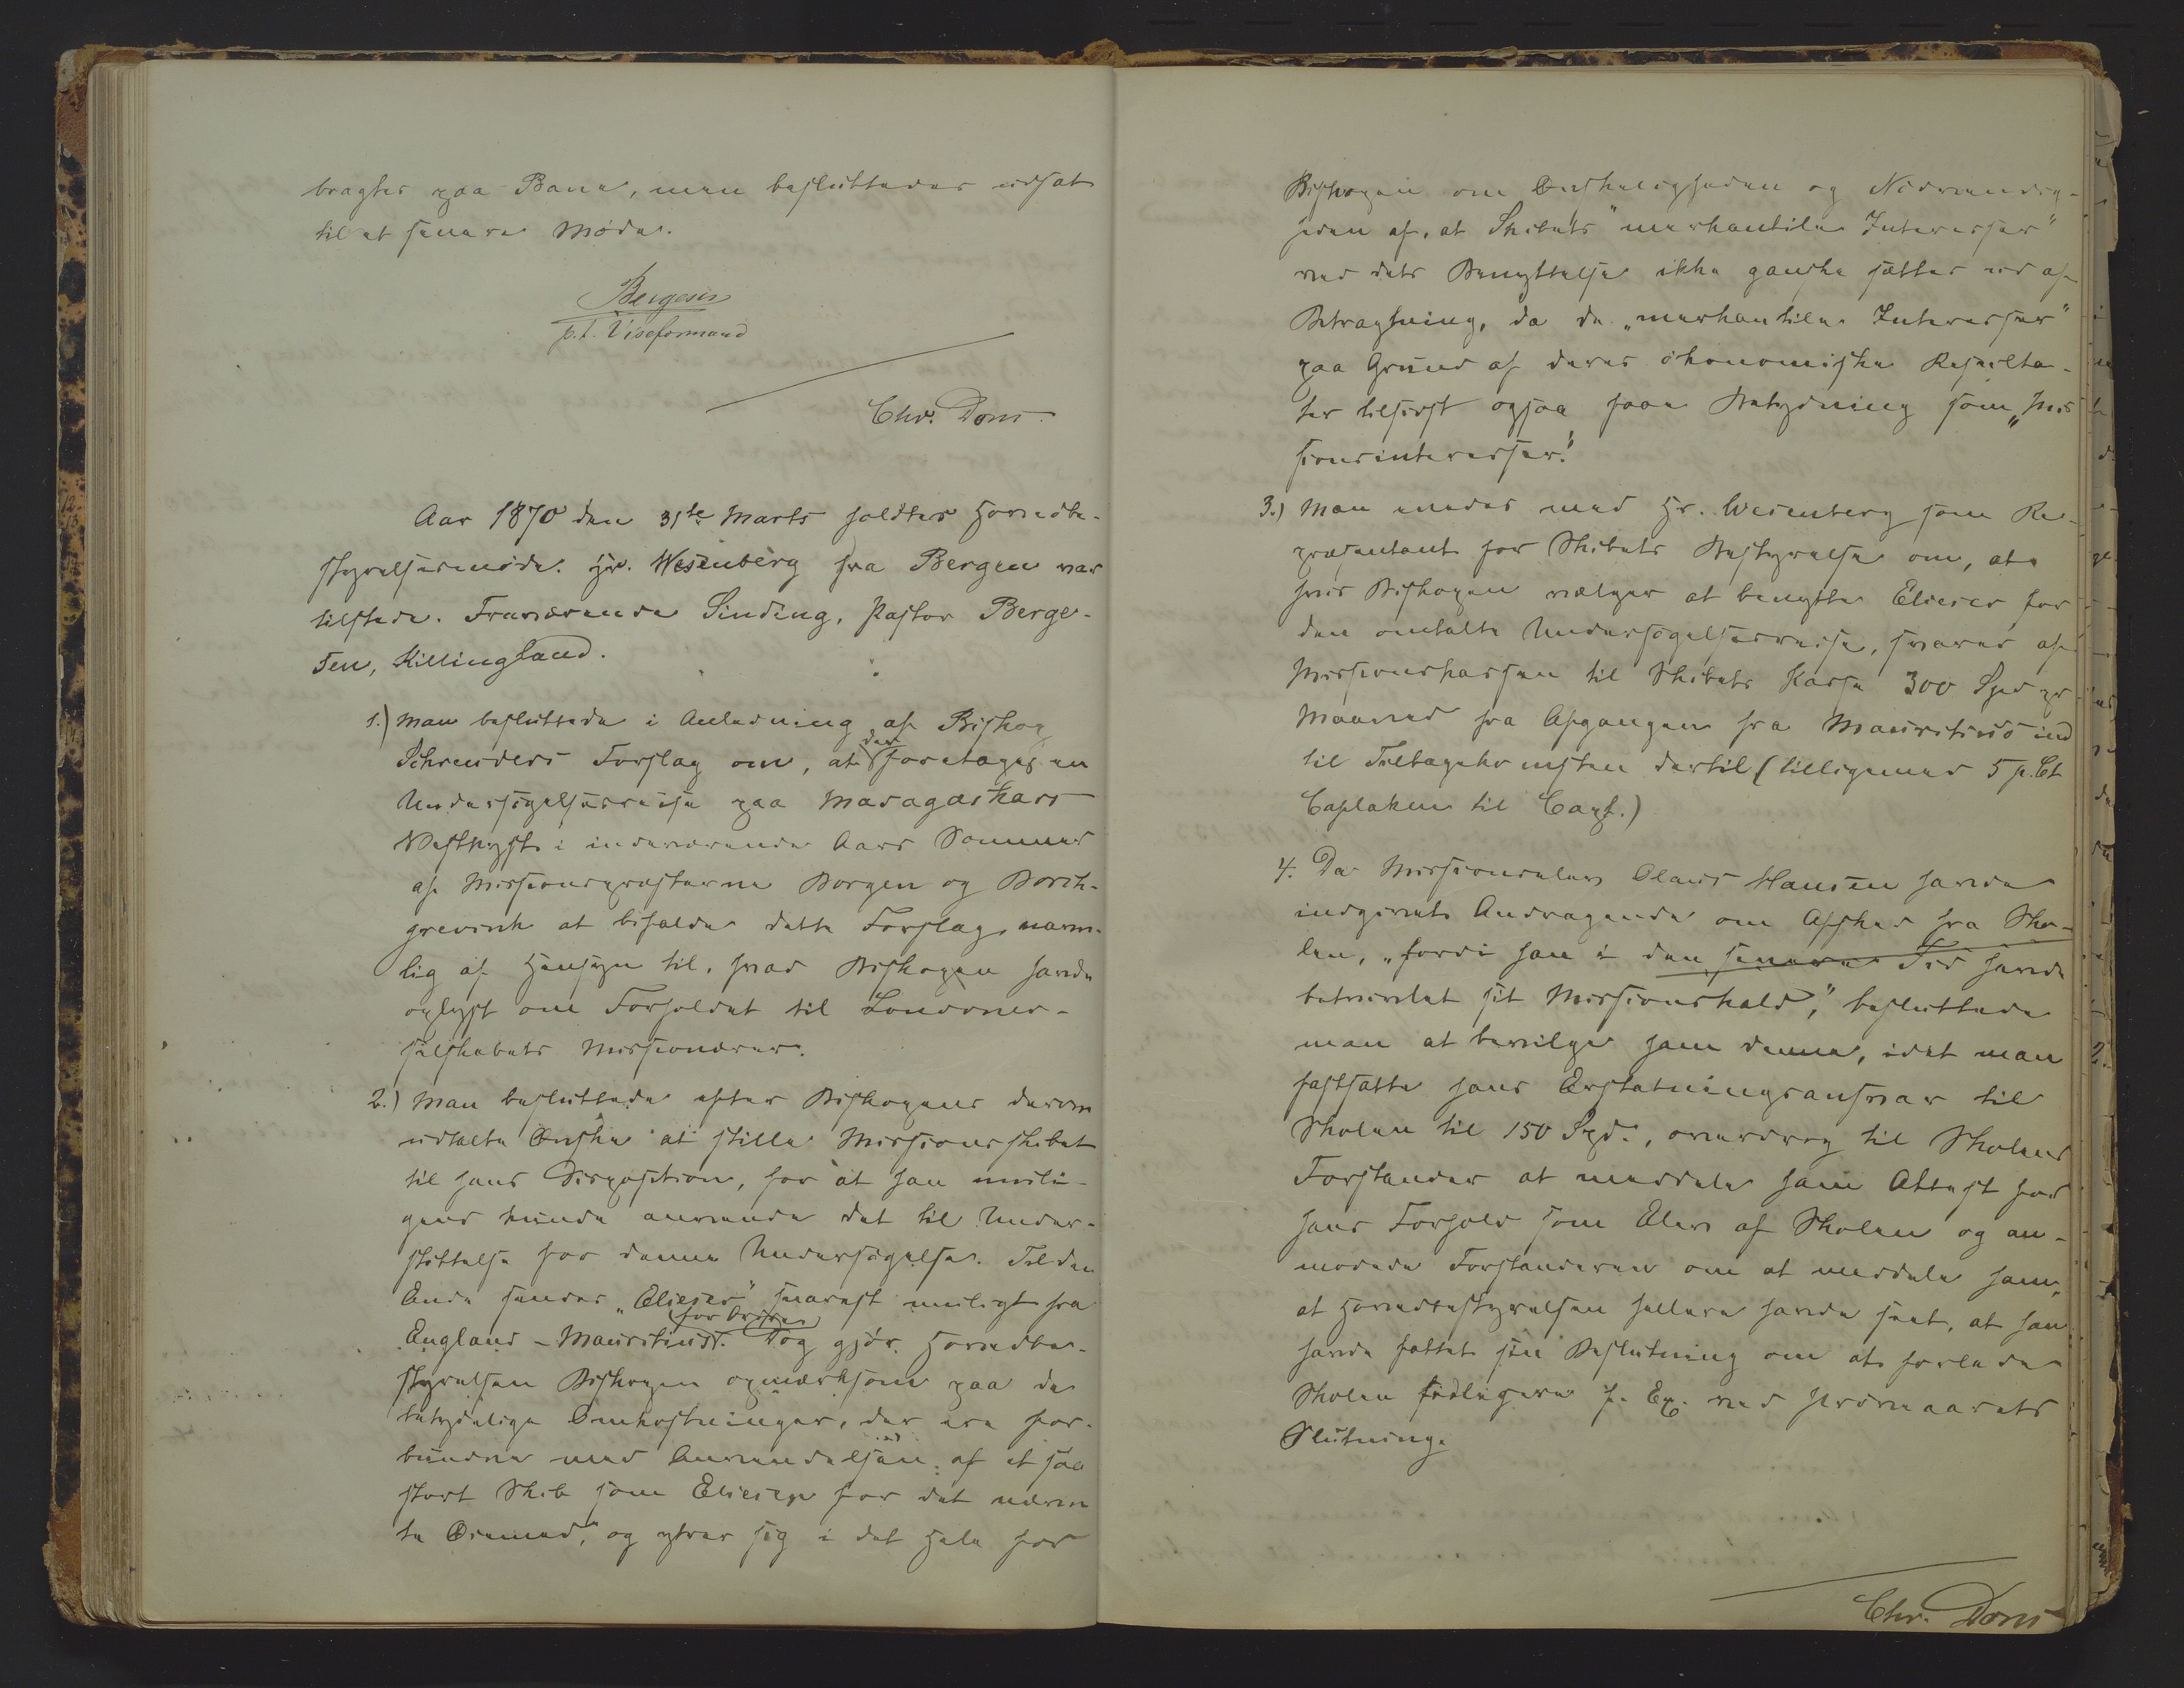 bragtes paa Bane, men besluttedes udsat
til et senere Møde.
Bergesen
p.t. Viseformand
Chr. Dons.
Aar 1870 den 31te Marts holdtes Hovedbe-
styrelsesmøde. Hr. Wesenberg fra Bergen var
tilstede. Fraværende Sinding, Pastor Berge-
sen, Killingland.
1.) Man besluttede i Anledning af Biskop
Schreuders Forslag om, at der foretages en
Undersøgelsesreise paa Madagaskars
Vestkyst i indeværende Aars Sommer
af Missionspræsterne Borgen og Borch-
grevink at bifalde dette Forslag, navn-
lig af Hensyn til, hvad Biskopen havde
oplyst om Forholdet til Londoner-
selskabets Missionærer.
2.) Man besluttede efter Biskopens derom
udtalte Ønske at stille Missionsskibet
til hans Disposition, for at han muli-
gens kunde anvende det til Under-
støttelse for denne Undersøgelse. Til den
Ende sendes "Elieser" snarest muligt fra
England - Mauritius for Ordres. Dog gjør Hovedbe-
styrelsen Biskopen opmærksom paa de
betydelige Omkostninger, der ere for-
bundne med Anvendelsen af et saa
stort Skib som Elieser for det nævn
te Øiemed, og ytrer sig i det Hele for
Biskopen om Ønskeligheden og Nødvendig-
heden af, at Skibets "merkantile Interesser"
ved dets Benyttelse ikke ganske sættes ud af
Betragtning, da de "merkantile Interesser"
paa Grund af deres økonomiske Resulta-
ter tilsidst ogsaa faae Betydning som "Mis
sionsinteresser."
3.) Man enedes med Hr. Wesenberg som Re-
præsentant for Skibets Bestyrelse om, at
hvis Biskopen vælger at benytte Elieser for
den omtalte Undersøgelsesreise, svares af
Missionskassen til Skibets Kasse 300 Spd pr
Maaned fra Afgangen fra Mauritius ind
til Tilbagekomsten dertil (tilligemed 5 p.Ct
Caplaken til Capt.)
4. Da Missionselev Olaus Hansen havde
indgivet Andragende om Afsked fra Sko-
len, "fordi han i den senere Tid havde
betvivlet sit Missionskald", besluttede
man at bevilge ham denne, idet man
fastsatte hans Erstatningsansvar til
Skolen til 150 Spd., overdrog til Skolens
Forstander at meddele ham Attest for
hans Forhold som Elev af Skolen og an-
modede Forstanderen om at meddele ham,
at Hovedbestyrelsen hellere havde seet, at han
havde fattet sin Beslutning om at forlade
Skolen tidligere f. Ex. ved Prøveaarets
Slutning.
Chr. Dons